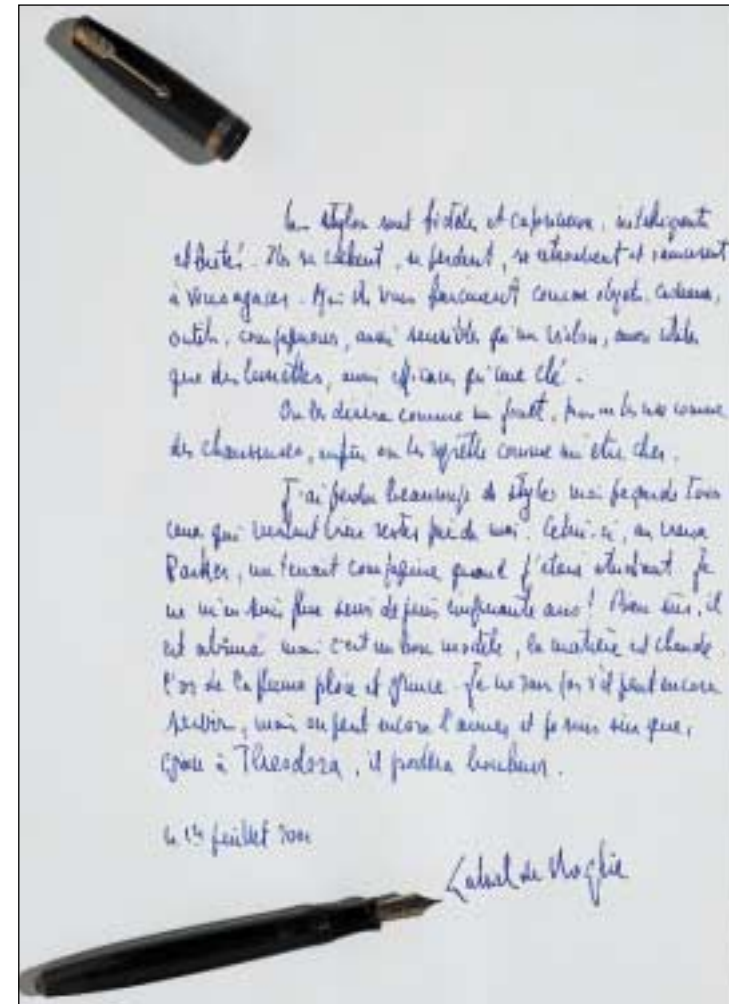 Les stylos sont fidèles et capricieux, intelligents
et butés. Ils se cachent, se perdent, se retrouvent et s'amusent
à vous agacer. Mais ils vous fascinent comme objets, cadeaux,
outils, compagnons, aussi sensibles qu'un violon, aussi utiles
que des lunettes, aussi efficaces qu'une clé.
On les désire comme un fruit, puis on les use comme
des chaussures, enfin on les regrette comme un être cher.
J'ai perdu beaucoup de stylos mais je garde tous
ceux qui veulent bien rester près de moi. Celui-ci, un vieux
Parker, me tenait compagnie quand j'étais étudiant. Je
ne m'en suis plus servi depuis cinquante ans! Bien sûr, il
est abîmé mais c'est un bon modèle, la matière est chaude
l'or de la plume ploie et grince. Je ne sais pas s'il peut encore
servir, mais on peut encore l'aimer et je suis sûr que,
grâce à Theodora, il portera bonheur.
le juillet